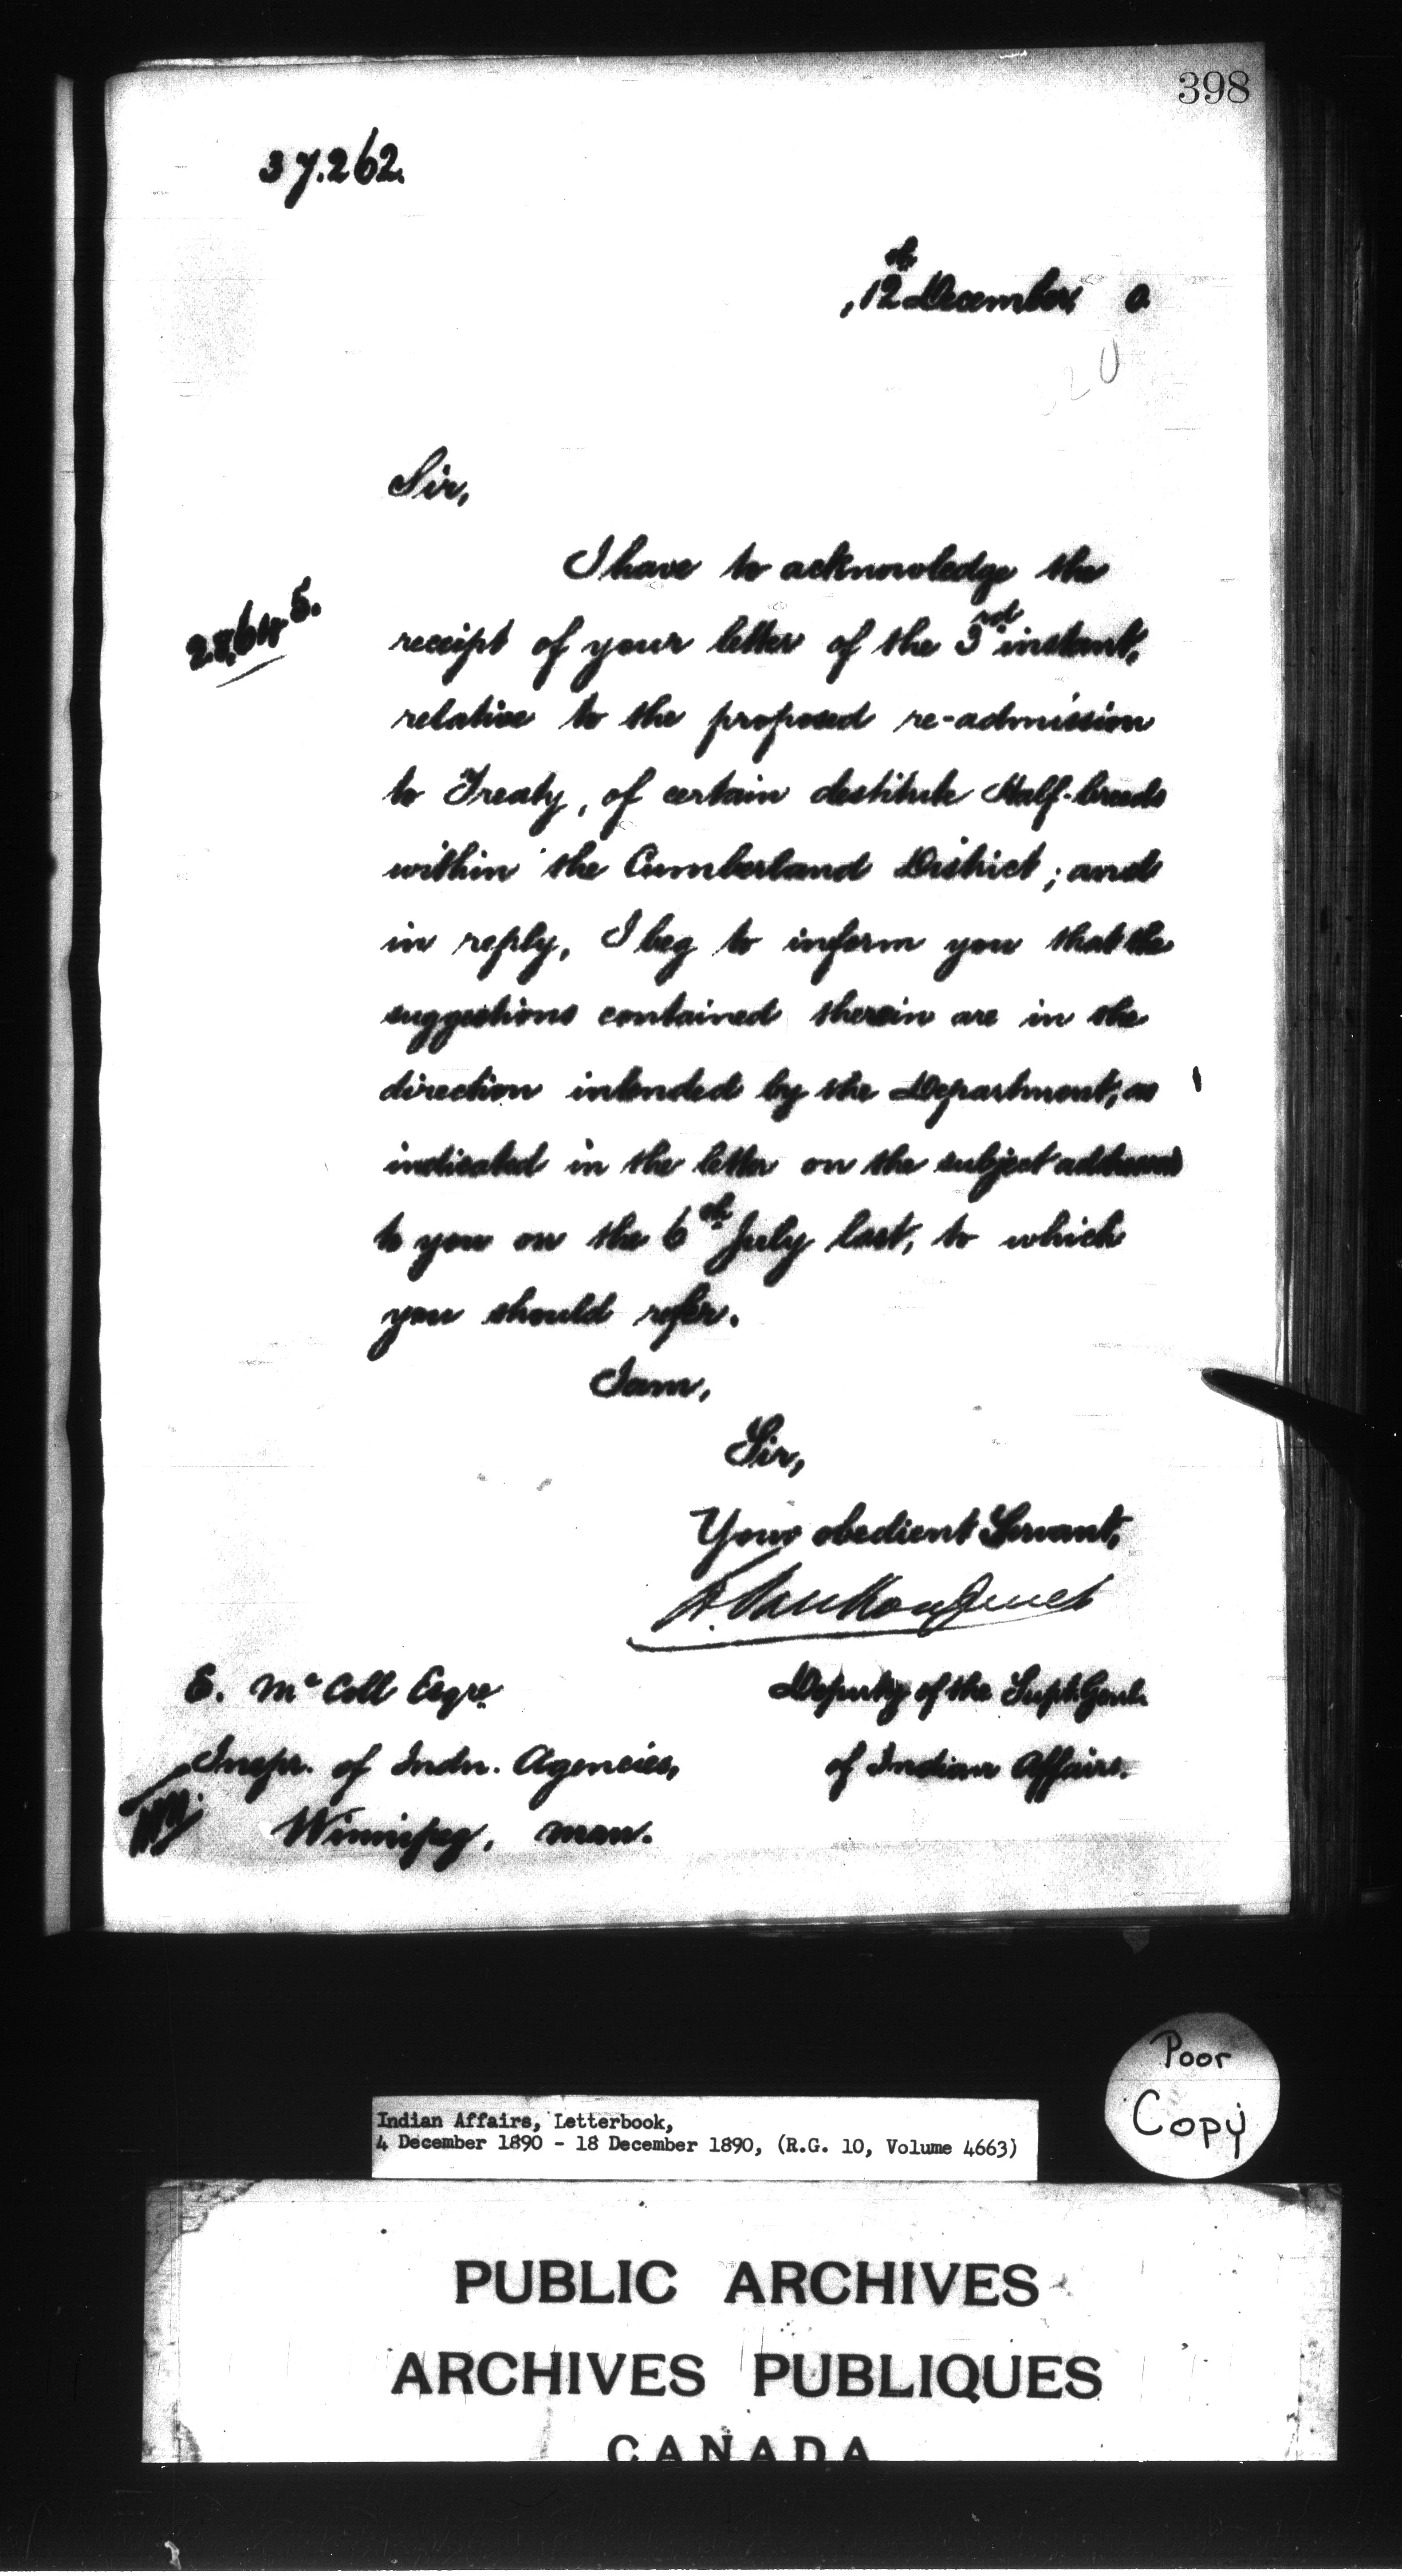 398
37.262.
12th December, 0
Sir,
I have to acknowledge the
receipt of your letter of the 3rd instant,
relative to the proposed re-admission
to Treaty, of certain destitute Half-breeds
within the Cumberland District; and
in reply, I beg to inform you that the
suggestions contained therein are in the
direction intended by the Department, as
indicated in the letter on the subject addressed
to you on the 6th July last, to which
you should refer.
I am,
Sir,
Your obedient Servant,
L. VanKoughnet
Deputy of the Supt. Genl.
of Indian Affairs.
E. McColl Esqre
Inspr. of Indn. Agencies,
Winnipeg, Man.
Poor
Copy
Indian Affairs, Letterbook,
4 December 1890 - 18 December 1890, (R.G. 10, Volume 4663)
PUBLIC ARCHIVES
ARCHIVES PUBLIQUES
CANADA